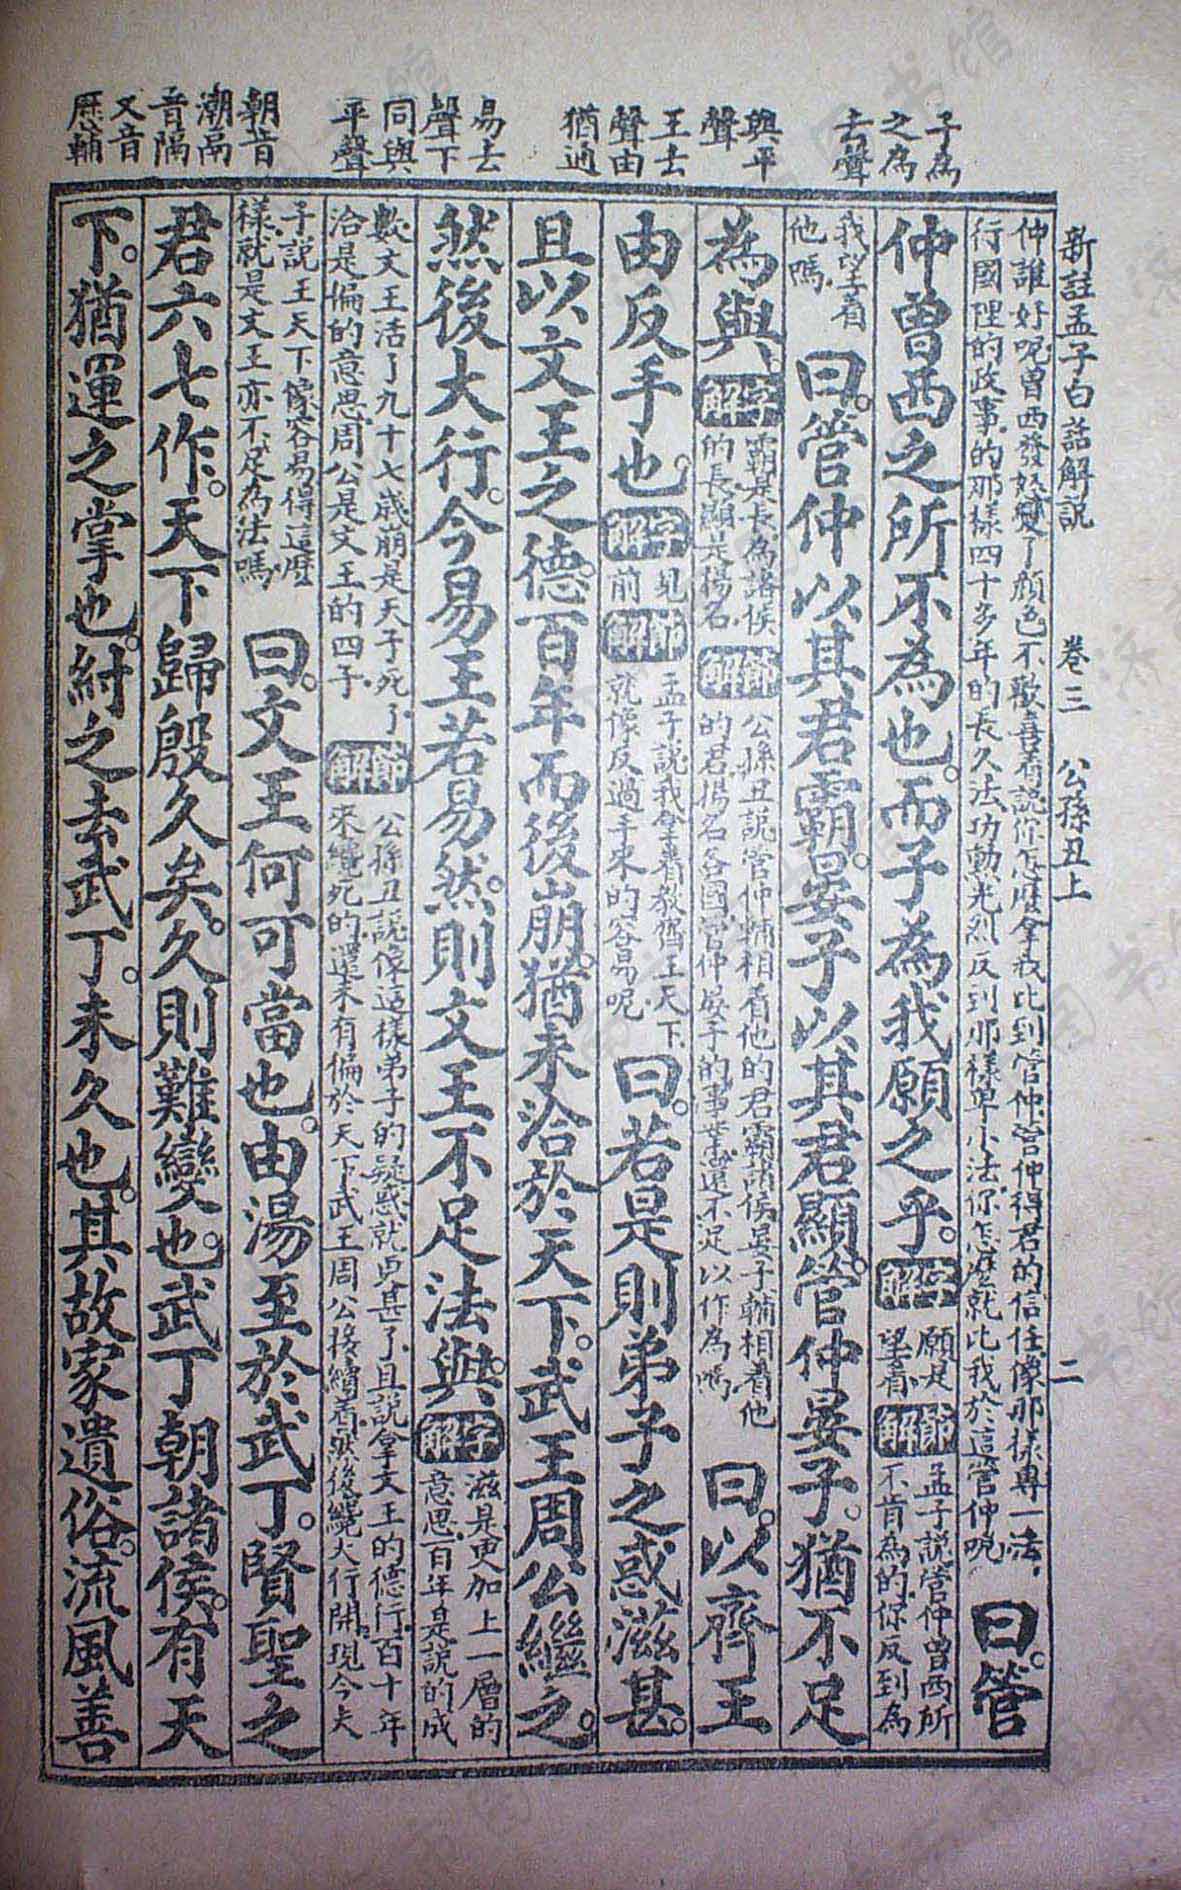 新註孟子白話解説 卷三 公孫丑上 二
子為
之為
去聲
與平
聲
王去
聲由
猶通
易去
聲下
同與
平聲
朝音
潮鬲
音隔
又音
歴輔
仲誰好呢曾西發怒變了顔色不歡喜着説你怎麽拿我比到管仲管仲得君的信任像那樣專一法
行國里的政事的那樣四十多年的長久法功勳光烈反到那樣卑小法你怎麽就比我於這管仲呢
曰管
仲曾西之所不為也而子為我願之乎
字解
願是
望看
節解
孟子説管仲曾西所
不肯為的你反到為
我望着
他嗎
曰管仲以其君霸晏子以其君顯管仲晏子猶不足
為與
字解
霸是長為諸侯
的長顯是揚名
節解
公孫丑説管仲輔相着他的君霸諸侯晏子輔相着他
的君揚名各國管仲晏子的事業還不足以作為嗎
曰以齊王
由反手也
字解
見
前
節解
孟子説我拿着教齊王天下
就像反過手來的容易呢
曰若是則弟子之惑滋甚
且以文王之德百年而後崩猶未洽於天下武王周公繼之
然後大行今易王若易然則文王不足法與
字解
滋是更加上一層的
意思百年是説的成
數文王活了九十七歲崩是天子死了
洽是徧的意思周公是文王的四子
節解
公孫丑説像這樣弟子的疑惑就更甚了且説拿文王的德行百十年
來纔死的還未有徧於天下武王周公接續着然後纔大行開現今夫
子説王天下像容易得這麽
樣就是文王亦不足為法嗎
曰文王何可當也由湯至於武丁賢聖之
君六七作天下歸殷久矣久則難變也武丁朝諸侯有天
下猶運之掌也紂之去武丁未久也其故家遺俗流風善